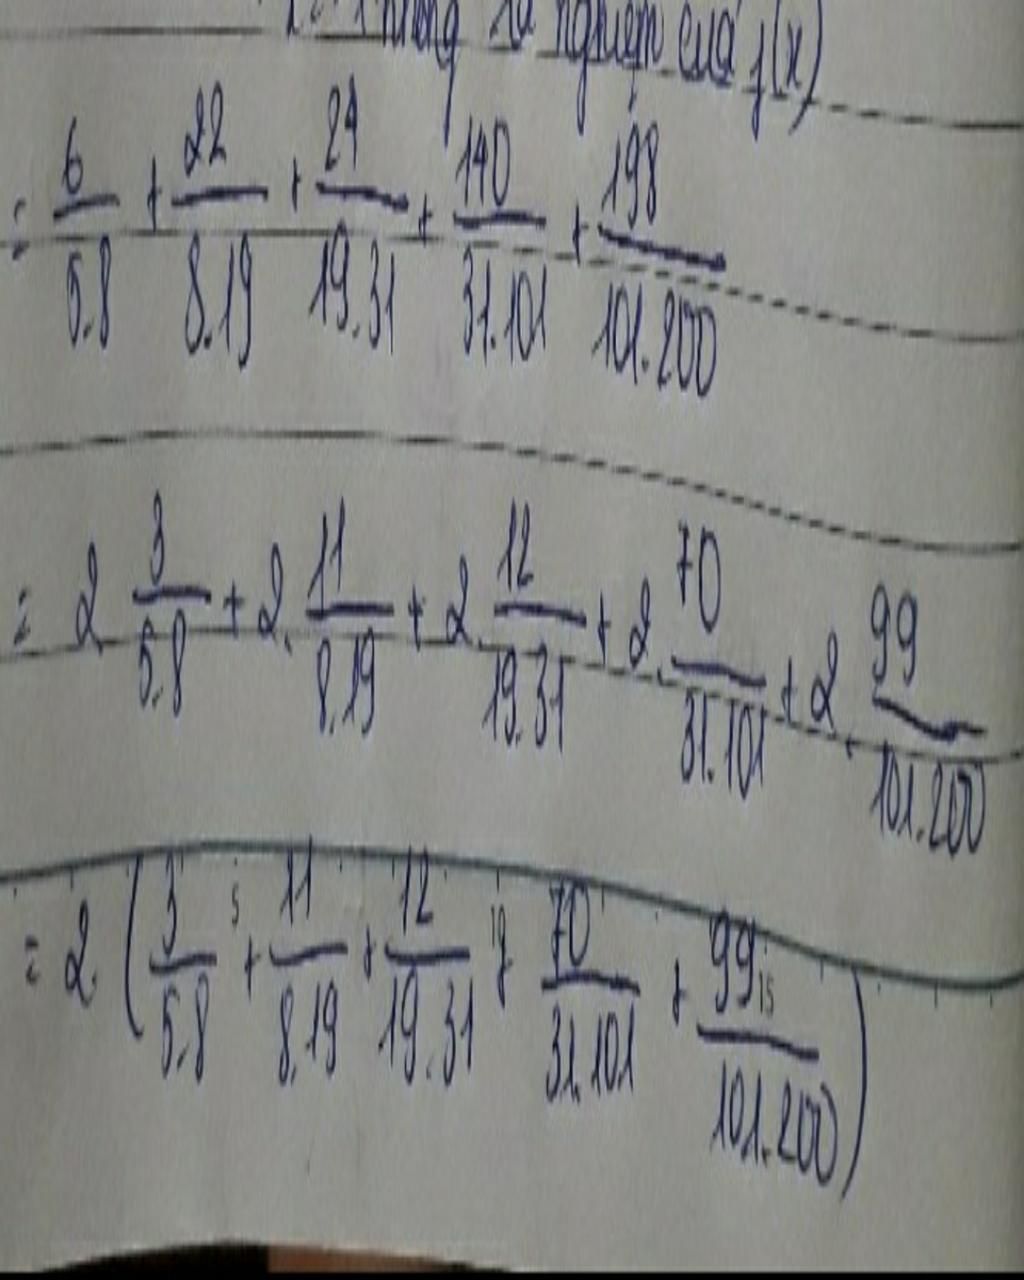 không là nghiệm của f(x)
= 6/5.8 + 22/8.19 + 24/19.31 + 140/31.101 + 198/101.200
= 2 3/5.8 + 2. 11/8.19 + 2. 12/19.31 + 2. 70/31.101 + 2. 99/101.200
= 2. (3/5.8 + 11/8.19 + 12/19.31 + 70/31.101 + 99/101.200)